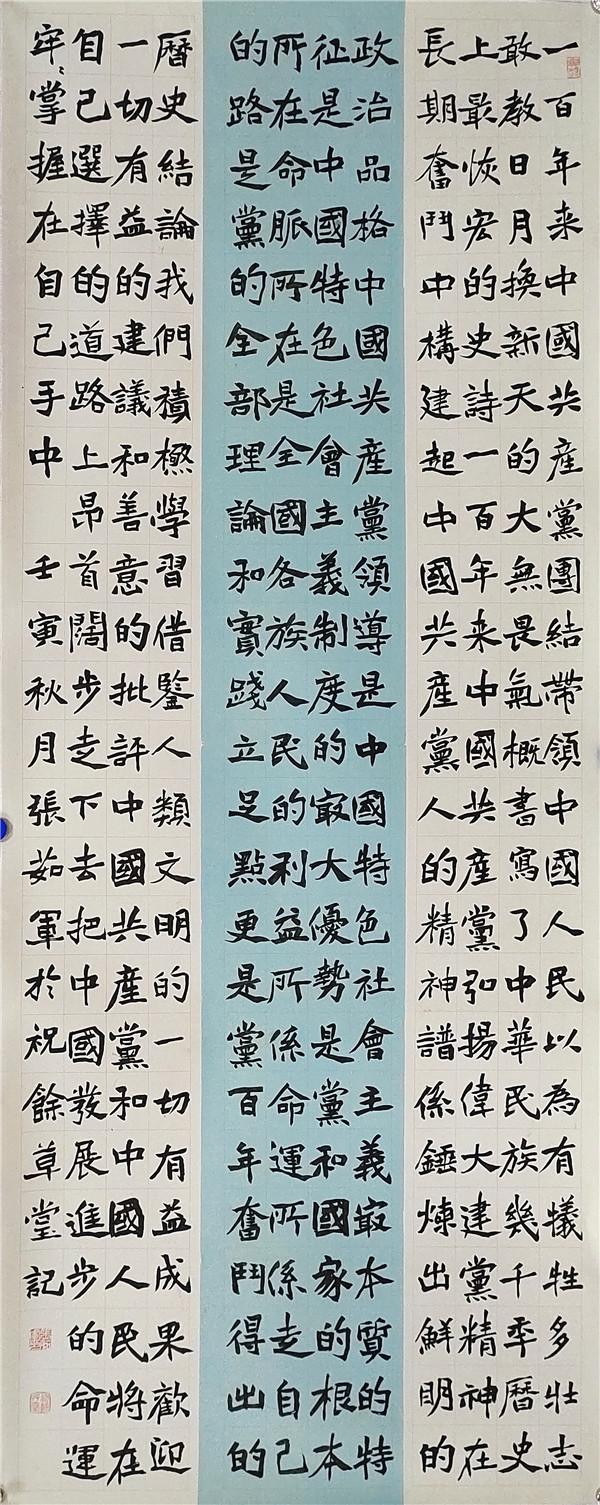 一百年来中國共產黨團結帶領中國人民以為有犧牲多壯志
敢教日月換新天的大無畏氣概書寫了中華民族幾千年曆史
上最恢宏的史詩一百年来中國共產黨弘揚偉大建黨精神在
長期奮鬥中構建起中國共產黨人的精神譜係錘煉出鮮明的
政治品格中國共產黨領導是中國特色社會主義最本質的特
征是中國特色社會主義制度的最大優勢是黨和國家的根本
所在命脈所在是全國各族人民的利益所係命運所係走自己
的路是黨的全部理論和實踐立足點更是黨百年奮鬥得出的
曆史結論我們積極學習借鑒人類文明的一切有益成果歡迎
一切有益的建議和善意的批評中國共產黨和中國人民將在
自己選擇的道路上昂首闊步走下去把中國發展進步的命運
牢〻掌握在自己手中 壬寅秋月張茹軍於祝餘草堂記